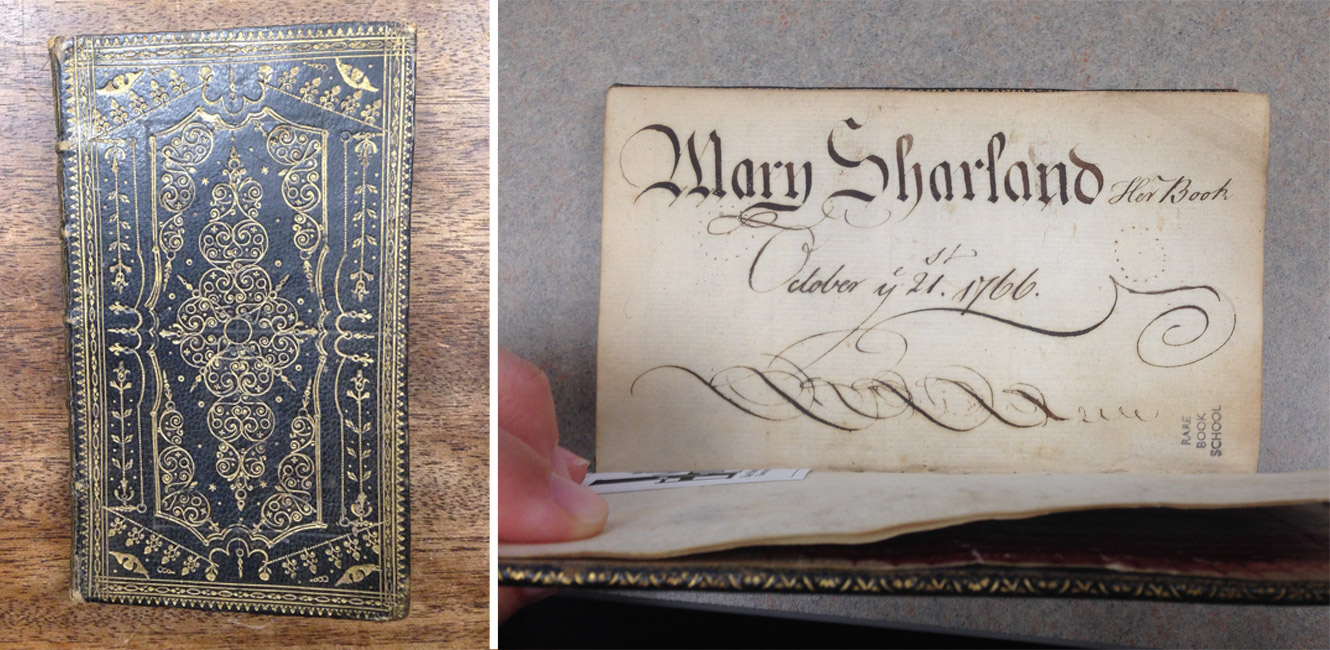 Mary Sharland Her Book
October yᵉ 21.ˢᵗ 1766.
RARE
BOOK
SCHOOL